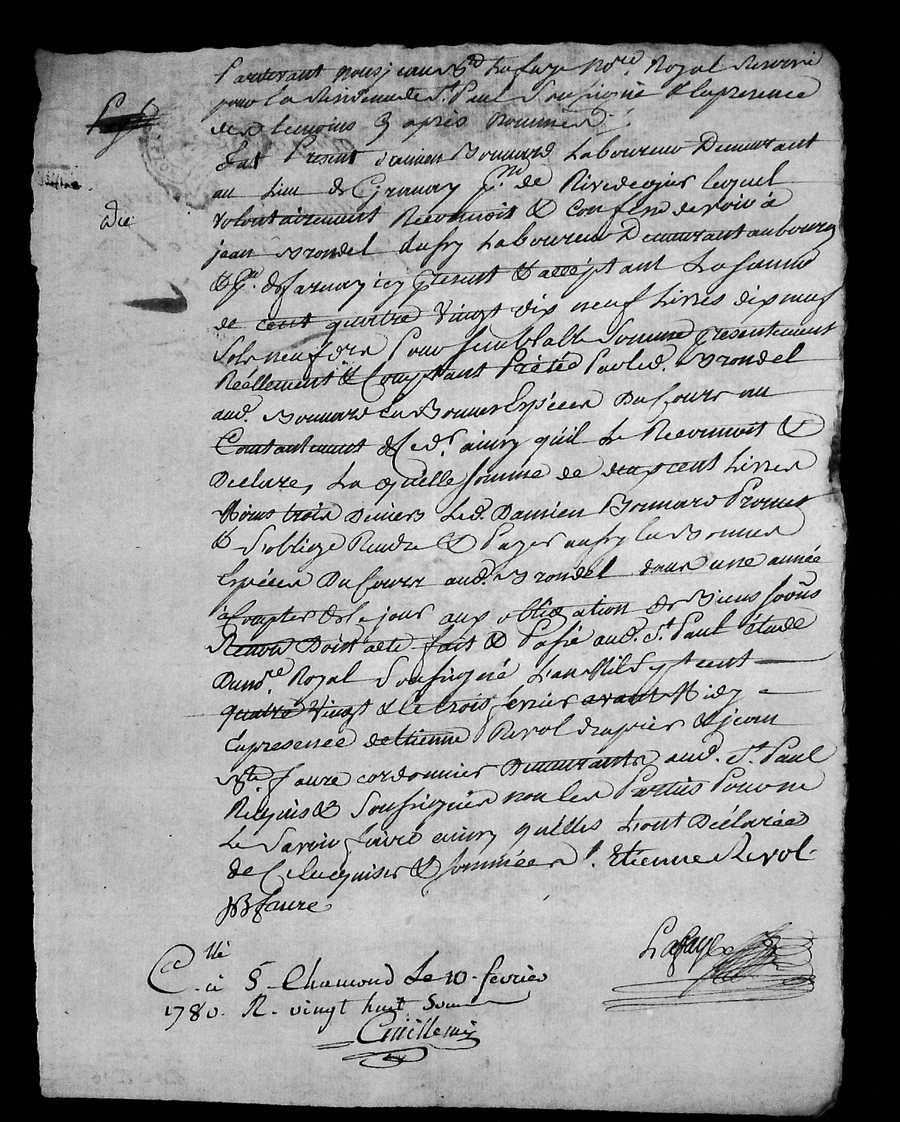 Pardevant nous jean Bte Lafaye Nore Royal Reservé
pour la Residence de St Paul Sousigné & la presence
des temoins cy apres nommés
fut Present Damien Bonnard Laboureur Demeurant
au Lieu de Granay psse de Rivedegier lequel
volontairement Reconnoit & confesse devoir a
jean Brondel aussy Laboureur Demeurant au bourg
& psse de farnay icy present & acceptant La somme
de cent quatre vingt dix neuf Livres dix neuf
Sols neuf drs Pour semblable somme presentement
Réellement & Comptant Prétée Par led. Brondel
aud. Bonnard En Bonnes Espéces Du Cours au
Contantement de ced. ainsy qu'il Le Reconnoit &
Déclare, La quelle somme de deux cent Livres
Moins trois Deniers Led. Damien Bonnard Promet
& S'oblige Rendre & Payer aussy En Bonnes
Espéces Du Cours aud. Brondel dans une année
a Compter de ce jour aux obligation de Biens soûs
Renon Dont acte fait & Passé aud. St Paul étude
Dud. nore Royal Sousigné L'an Mil Sept cent
quatre vingt & le trois fevrier avant Midy
En presence de Etienne Revol drapier & jean
Bte faure cordonnier Demeurants aud. St Paul
Requis & Sousignés non les Parties Pour ne
Le Savoir faire ainsy qu'elles L'ont Déclarée
de Ce Enquises & Sommées. Etienne Revol
JB faure
Lafaye
Cllé
a St Chamond Le 10 fevrier
1780. R. vingt huit sous
Guillemin